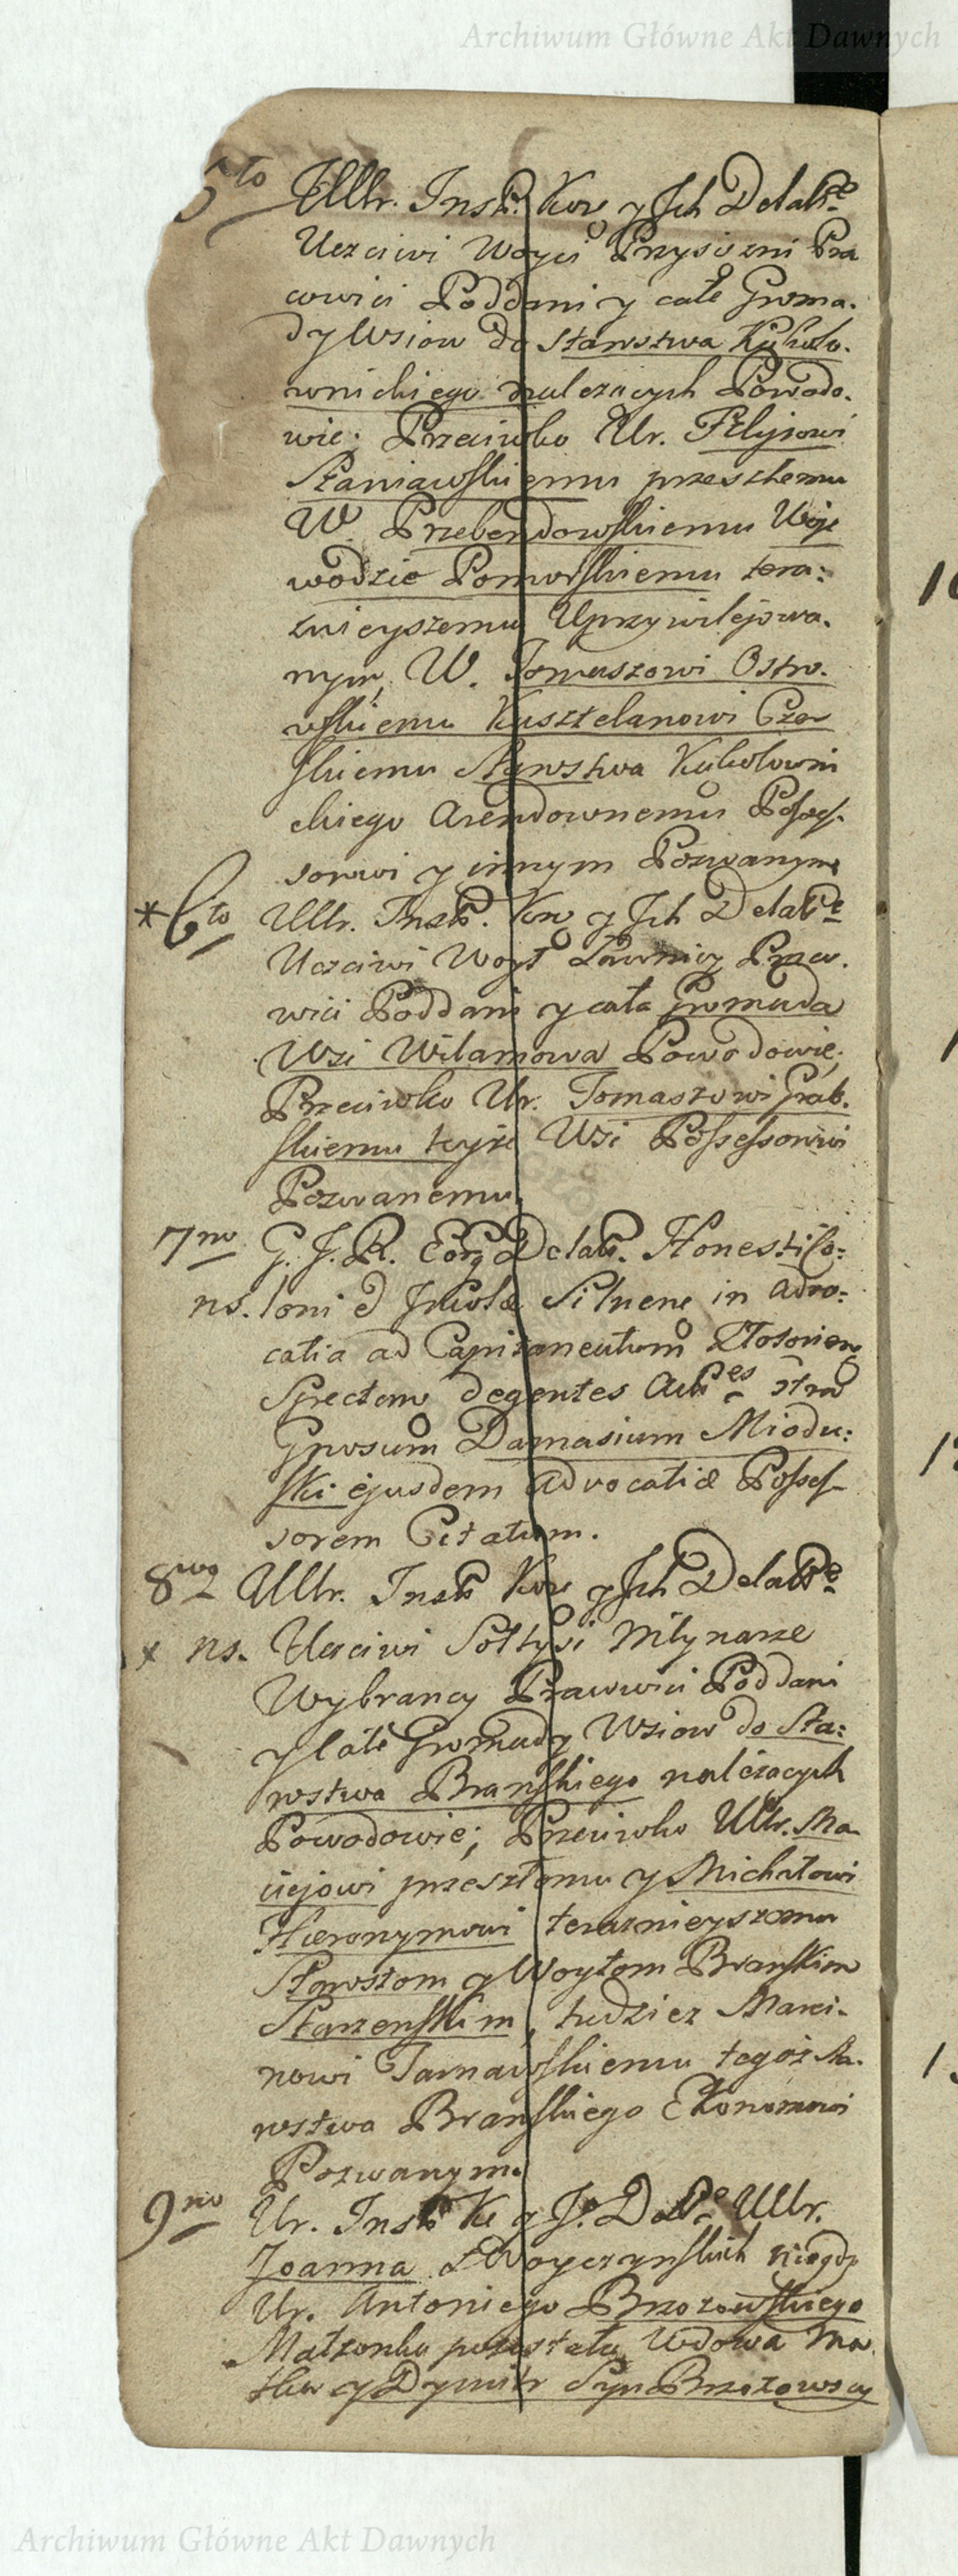 Archiwum Główne Akt Dawnych
5to Ullr. Inst. Kor. y Jch Delat.e
Uczciwi Woyci Przysiężni Pra
cowici Poddani y całe Groma.
dy Wsiow do Starostwa Kukoło.
wnickiego należących Powodo.
wie; Przeciwko Ur. Filipowi
Staniawskiemu przeszłemu
W. Przebendowskiemu Woje
wodzie Pomorskiemu tera:
znieyszemu Uprzywilejowa.
nym, W. Tomaszowi Ostro.
wskiemu Kasztelanowi Czer
skiemu Starostwa Kukołowni
ckiego Arendownemu Posses.
sorowi y innym Pozwanym
* 6to Ullr. Inst. Kor. y Jch Delat.e
Uczciwi Woyt Ławnicy Praco.
wici Poddani y cała Gromada
Wsi Wilamowa Powodowie;
Przeciwko Ur. Tomaszowi Grab.
skiemu teyże Wsi Possessorowi
Pozwanemu.
7mo G. J. R. Eorq Delat. Honesti Co:
ns. loni & Incolæ Silnene in Advo:
catia ad Capitaneatum
Spectan degentes Act.es ctra
Gnosum Damasium Miodu:
ski ejusdem Advocatiæ Posses
sorem Citatum.
8vo Ullr. Inst. Kor y Jch Delat.e
x ns. Uczciwi Sołtysi Młynarze
Wybrancy Pracowici Poddani
y całe Gromady Wsiow do Sta:
rostwa Branskiego należacych
Powodowie; Przeciwko Ullr. Ma
ciejowi przeszłemu y Michałowi
Hieronymowi teraznieyszemu
Starostom y Woytom Branskim
Starzenskim, tudziez Marci.
nowi Tarnawskiemu tegoż Sta.
rostwa Branskiego Ekonomowi
Pozwanym.
9no Ur. Inst. Ko y J. Del.e Ullr.
Joanna z Woyczynskich niegdy
Ur. Antoniego Brzozowskiego
Małzonka pozostała Wdowa Ma
tka y Dymitr Syn Brzozowscy
Archiwum Główne Akt Dawnych